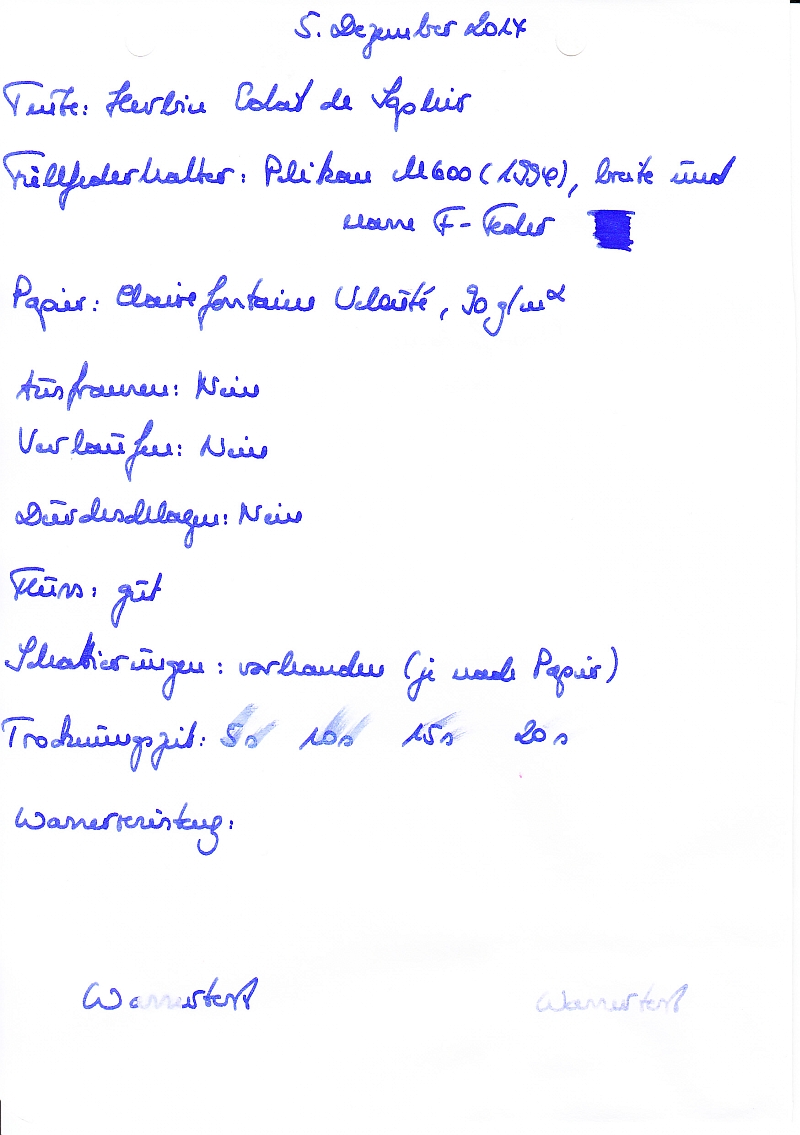 5. Dezember 2017
Tinte: Herbin Eclat de Saphir
Füllfederhalter: Pelikan M600 (1994), breite und
nasse F-Feder
Papier: Clairefontaine Velouté, 90 g/m²
Ausfransen: Nein
Verlaufen: Nein
Durchschlagen: Nein
Fluss: gut
Schattierungen: vorhanden (je nach Papier)
Trocknungszeit: 5s 10s 15s 20s
Wasserresistenz:
Wassertest Wassertest